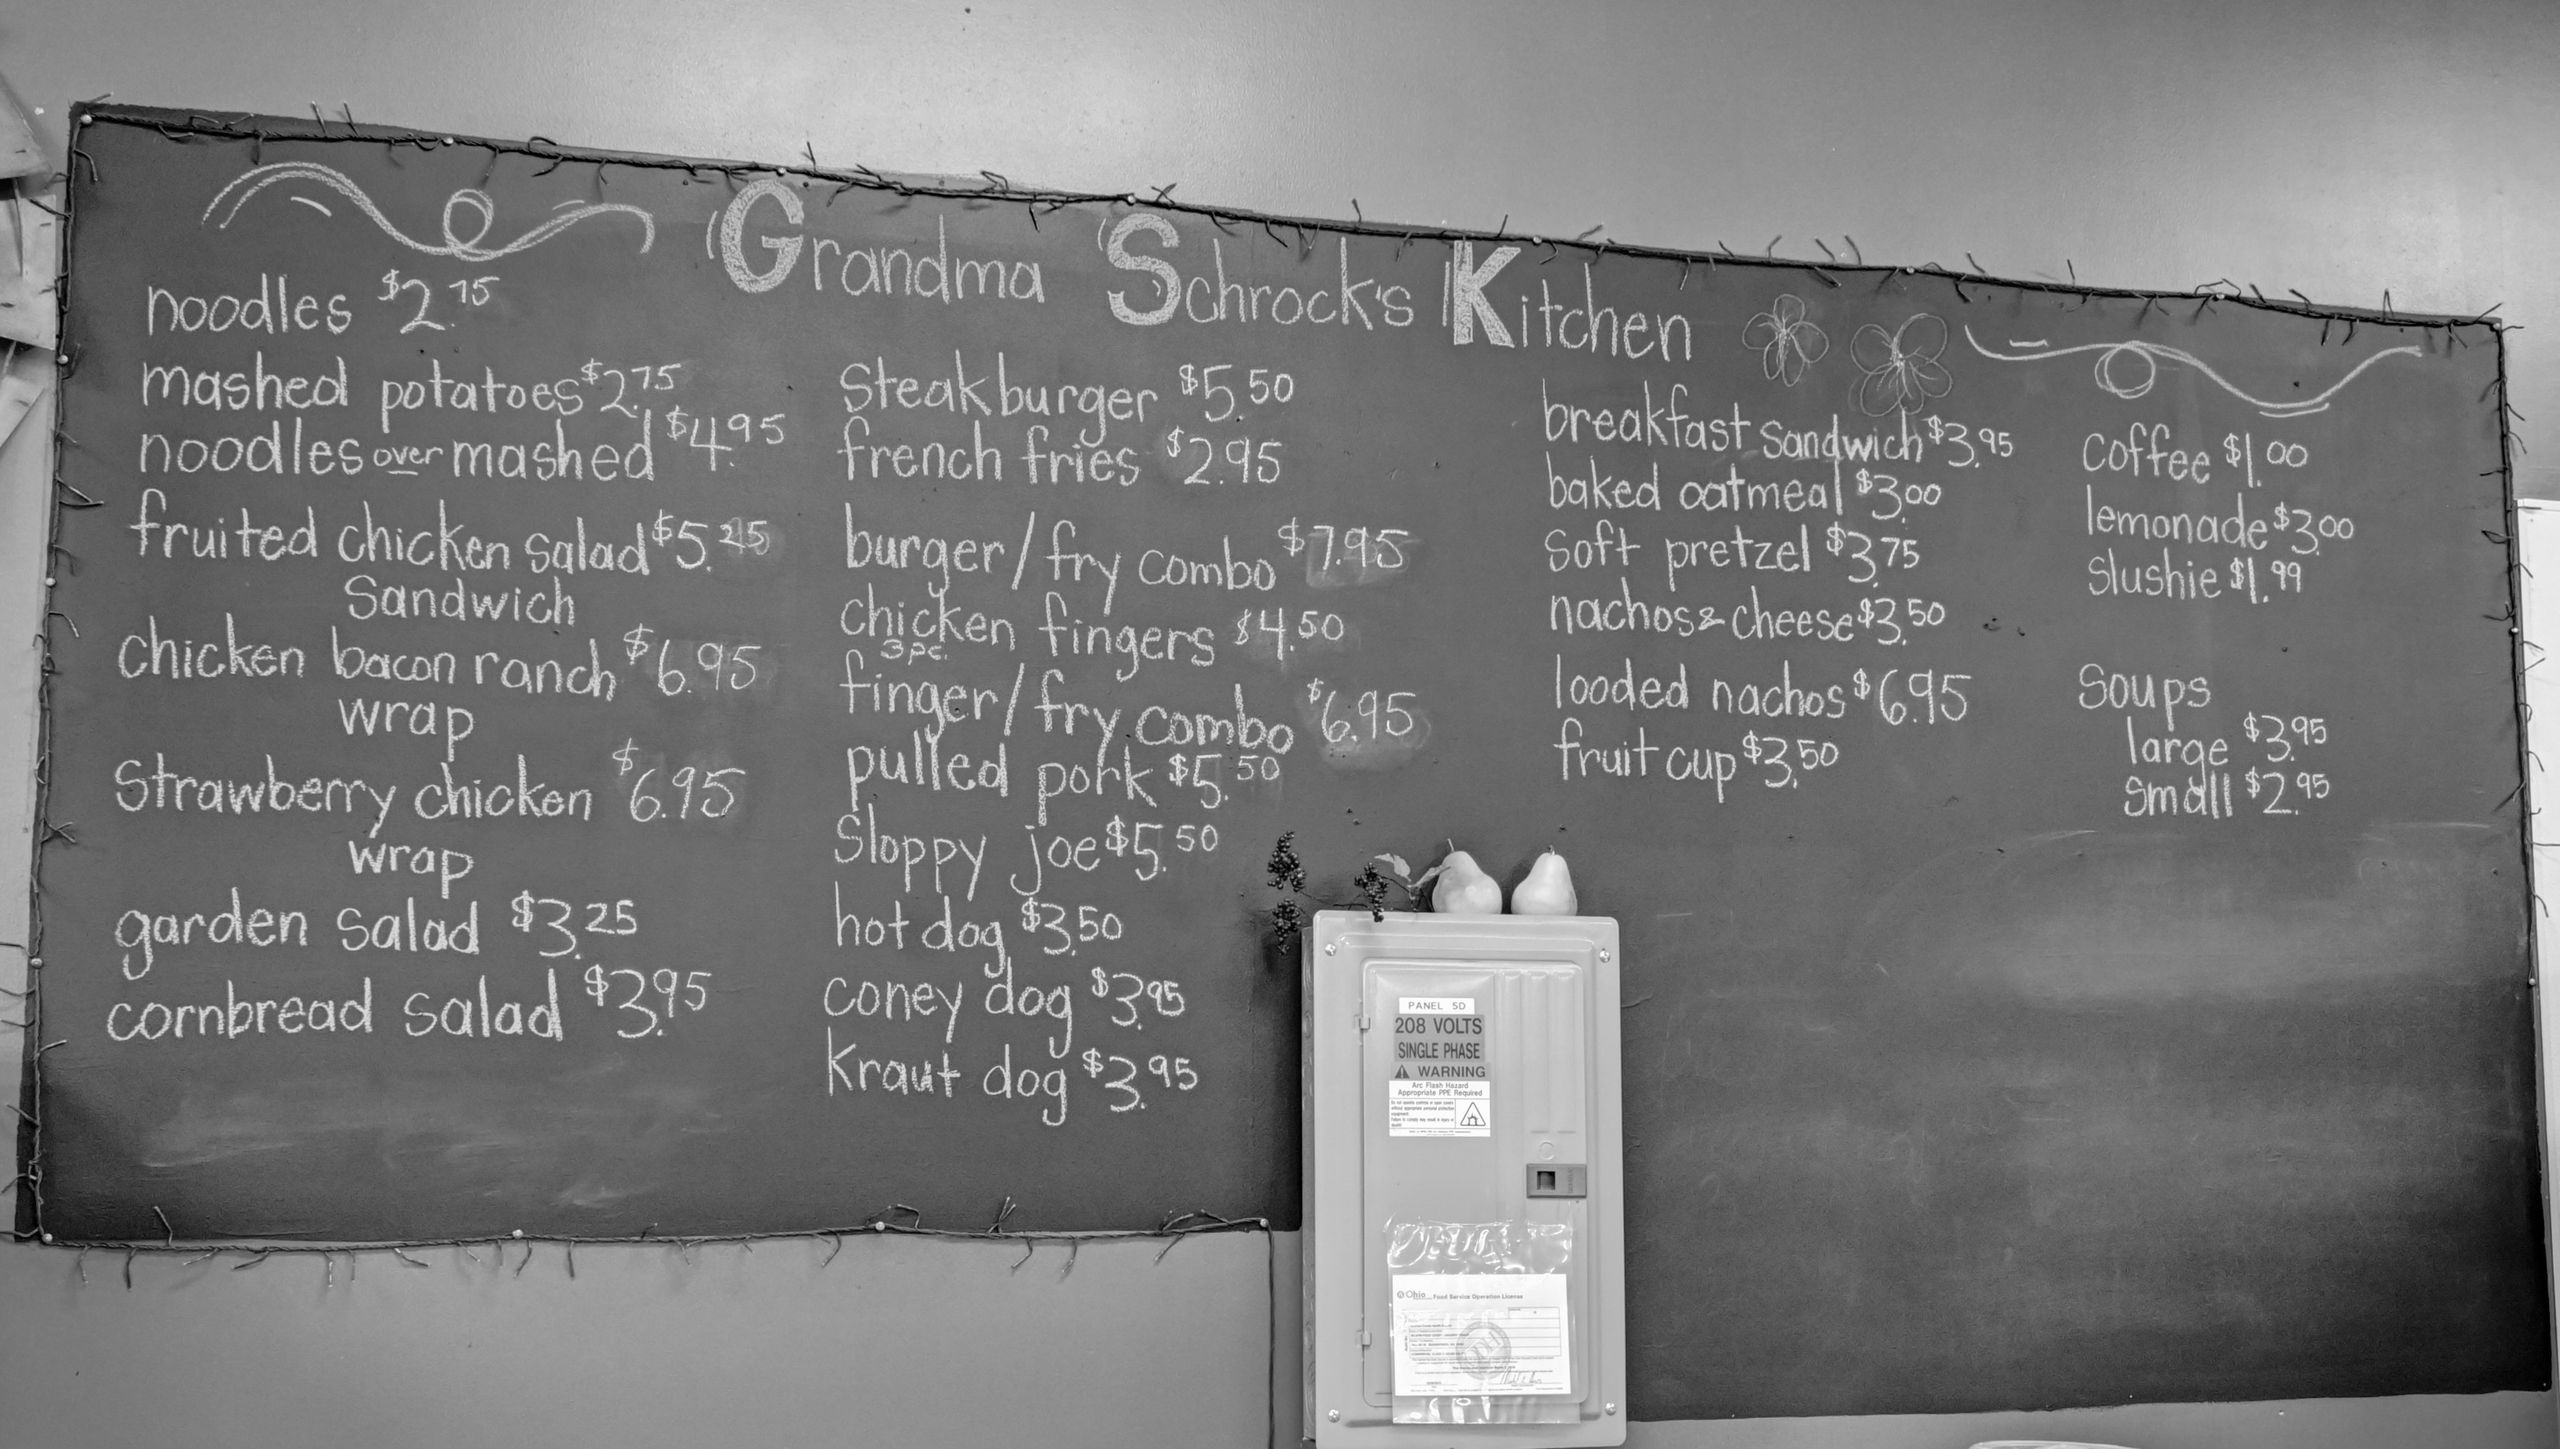 Grandma Schrock's Kitchen
noodles $2.75
mashed potatoes $2.75
noodles over mashed $4.95
fruited chicken salad $5.25
Sandwich
chicken bacon ranch $6.95
wrap
Strawberry chicken $6.95
wrap
garden salad $3.25
cornbread salad $3.95
Steakburger $5.50
french fries $2.95
burger/fry combo $7.95
chicken fingers $4.50
3pc.
finger/fry combo $6.95
pulled pork $5.50
Sloppy joe $5.50
hot dog $3.50
coney dog $3.95
Kraut dog $3.95
breakfast Sandwich $3.95
baked oatmeal $3.00
Soft pretzel $3.75
nachos & cheese $3.50
looded nachos $6.95
fruit cup $3.50
coffee $1.00
lemonade $3.00
Slushie $1.99
Soups
large $3.95
Small $2.95
PANEL 5D
208 VOLTS
SINGLE PHASE
WARNING
Arc Flash Hazard
Appropriate PPE Required
Ohio Food Service Operation License